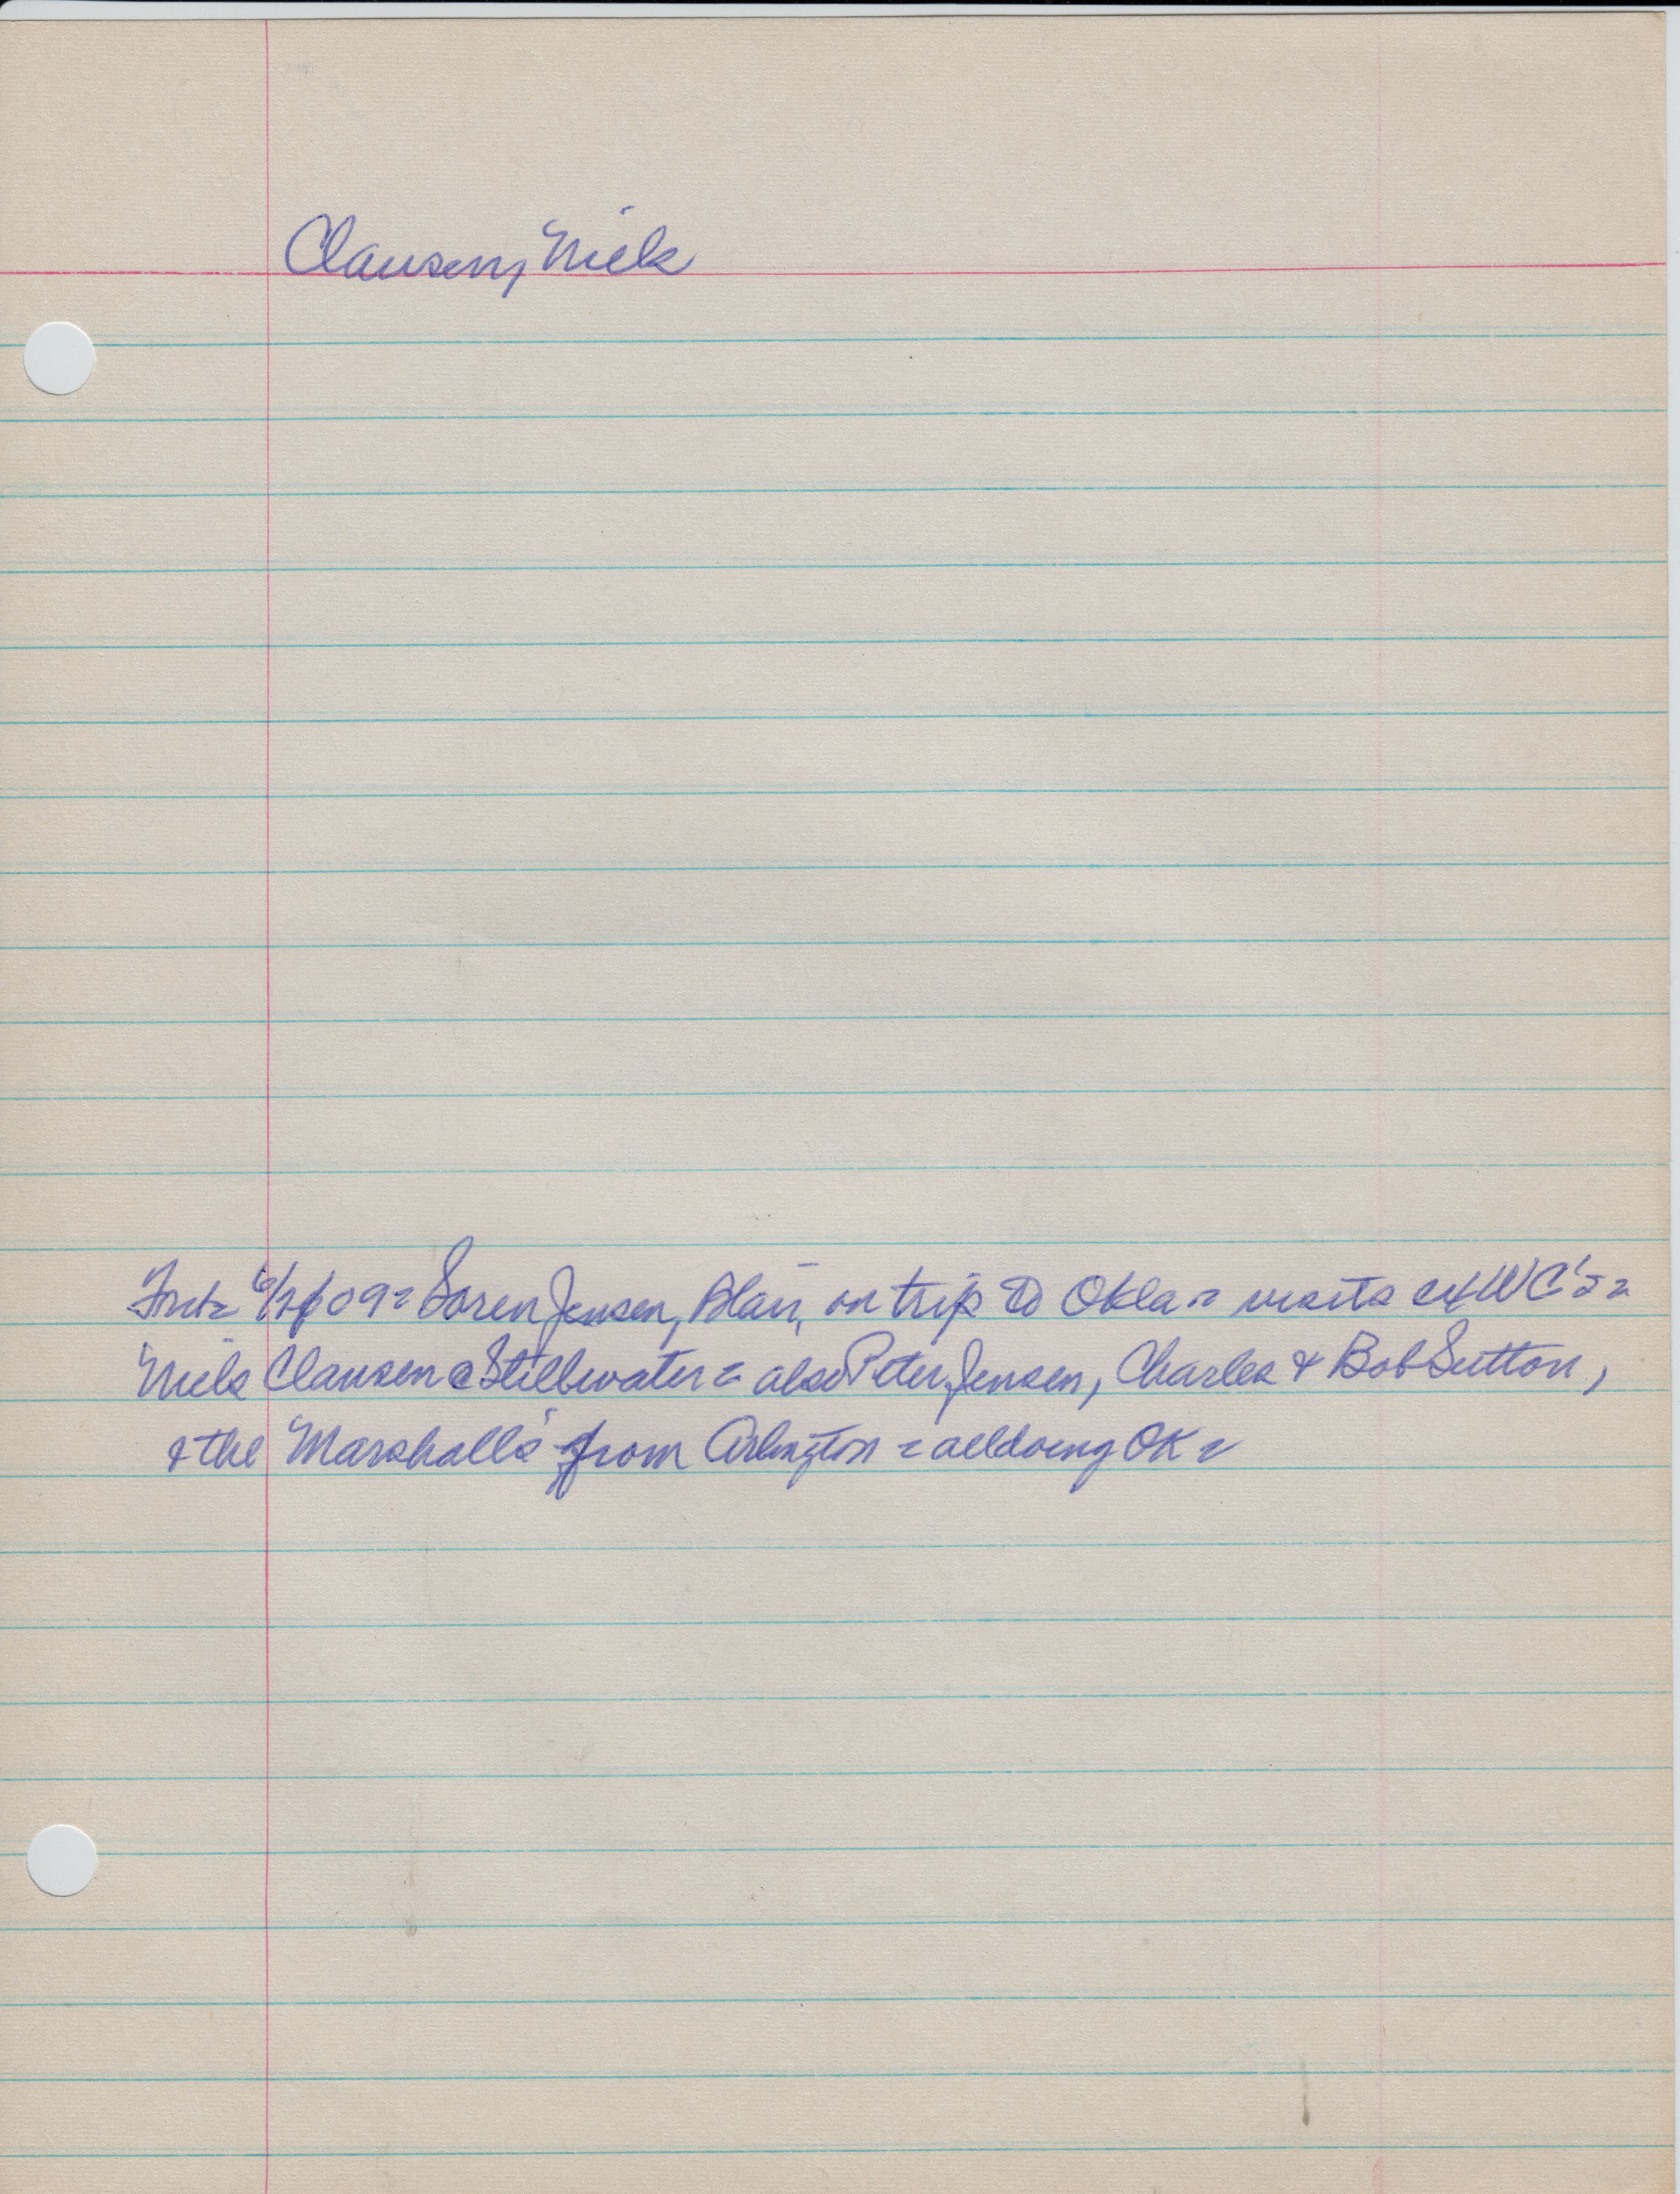 Clausen, Niels
6/ 09 = Soren Jensen, Blair, on trip to Okla = visits ex WC's =
Niels Clausen @ Stillwater = also Peter Jensen, Charles & Bob Sutton,
& the Marshalls from Arlington = all doing OK =